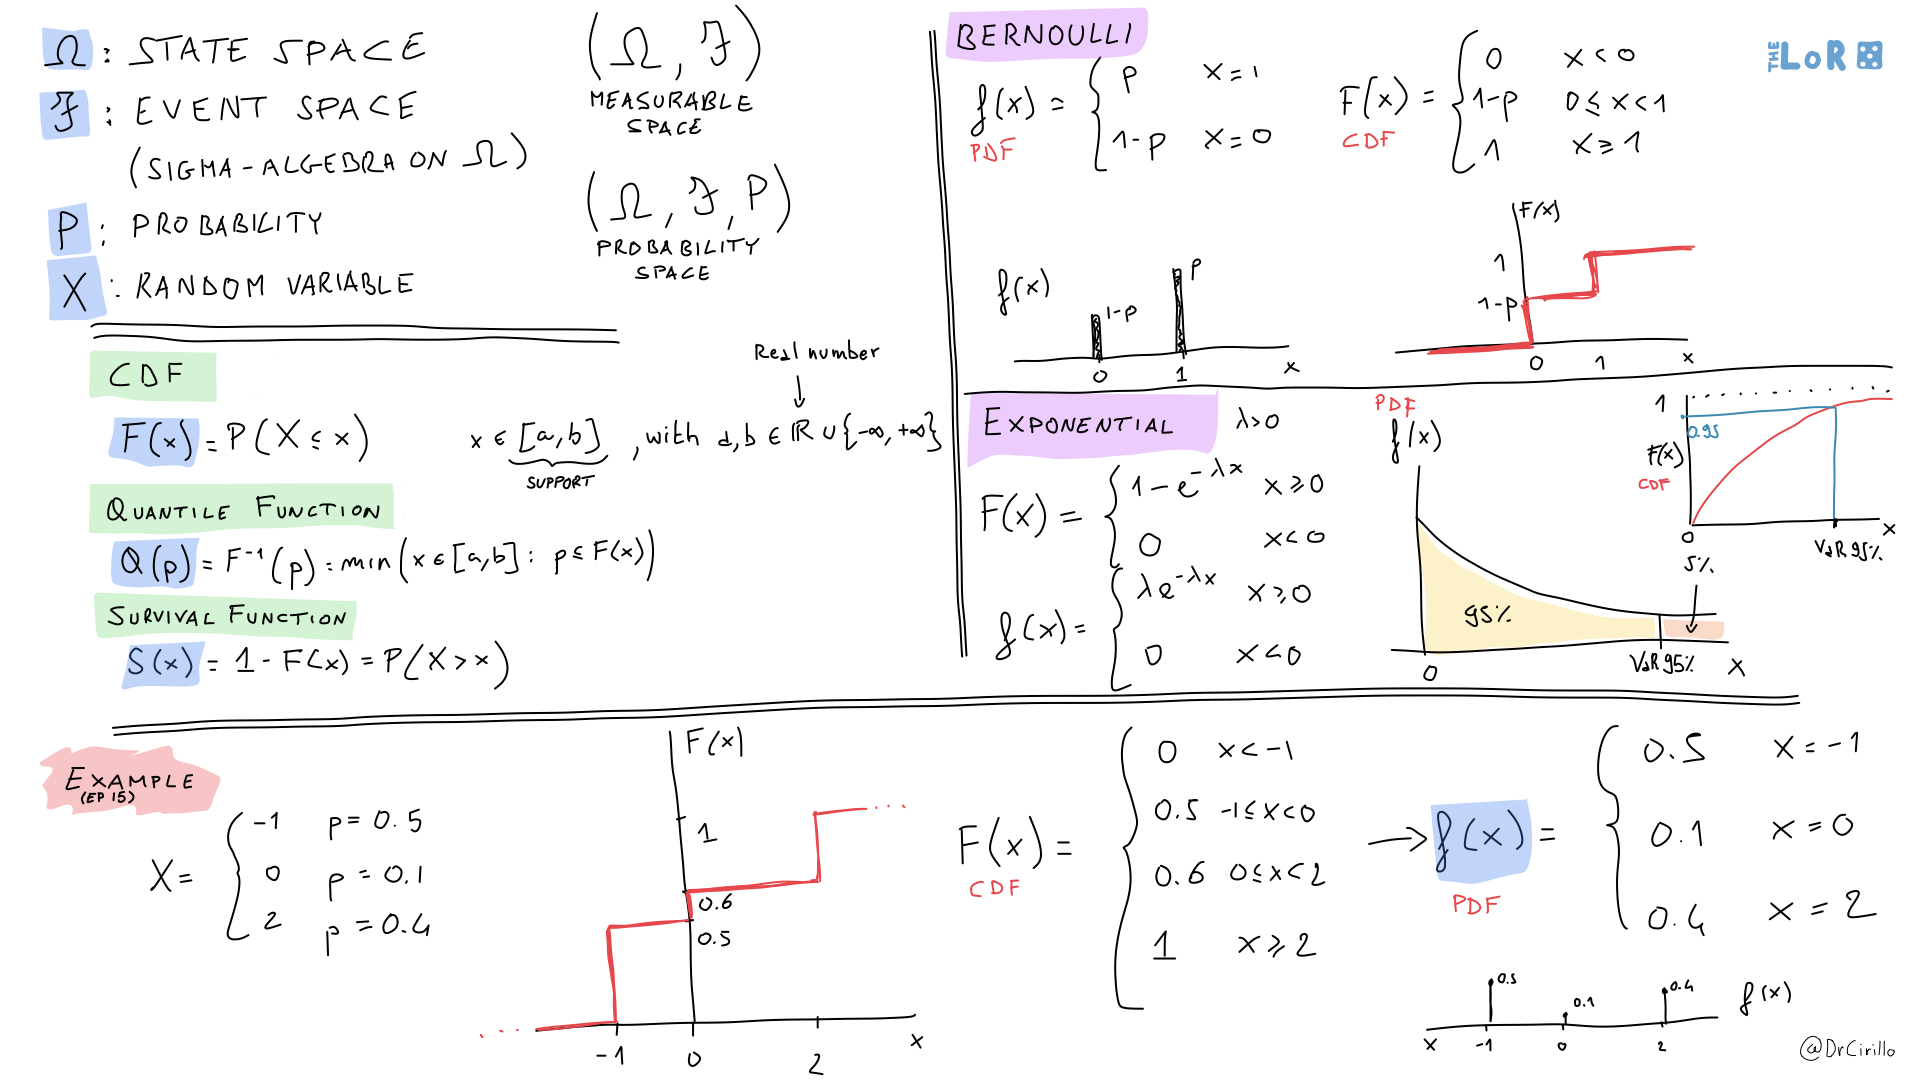 Ω : STATE SPACE
ℱ : EVENT SPACE
(SIGMA-ALGEBRA ON Ω)
P : PROBABILITY
X : RANDOM VARIABLE
(Ω, ℱ)
MEASURABLE
SPACE
(Ω, ℱ, P)
PROBABILITY
SPACE
CDF
F(x) = P(X ≤ x)
x ∈ [a,b] , with a,b ∈ ℝ ∪ {-∞, +∞}
SUPPORT
Real number
QUANTILE FUNCTION
Q(p) = F⁻¹(p) = min(x ∈ [a,b] : p ≤ F(x))
SURVIVAL FUNCTION
S(x) = 1 - F(x) = P(X > x)
BERNOULLI
f(x) = { p x = 1
1-p x = 0
PDF
F(x) = { 0 x < 0
1-p 0 ≤ x < 1
1 x ≥ 1
CDF
THE LoR
f(x)
1-p
p
0 1 x
F(x)
1
1-p
0 1 x
EXPONENTIAL λ>0
F(x) = { 1 - e^-λx x ≥ 0
0 x < 0
f(x) = { λe^-λx x ≥ 0
0 x < 0
PDF
f(x)
95%
5%
0 VaR 95% x
1
0.95
F(x)
CDF
0 VaR 95% x
EXAMPLE
(EP 15)
X = { -1 p = 0.5
0 p = 0.1
2 p = 0.4
F(x)
1
0.6
0.5
-1 0 2 x
F(x) = { 0 x < -1
0.5 -1 ≤ x < 0
0.6 0 ≤ x < 2
1 x ≥ 2
CDF
→ f(x) = { 0.5 x = -1
0.1 x = 0
0.4 x = 2
PDF
0.5 0.1 0.4 f(x)
x -1 0 2
@DrCirillo